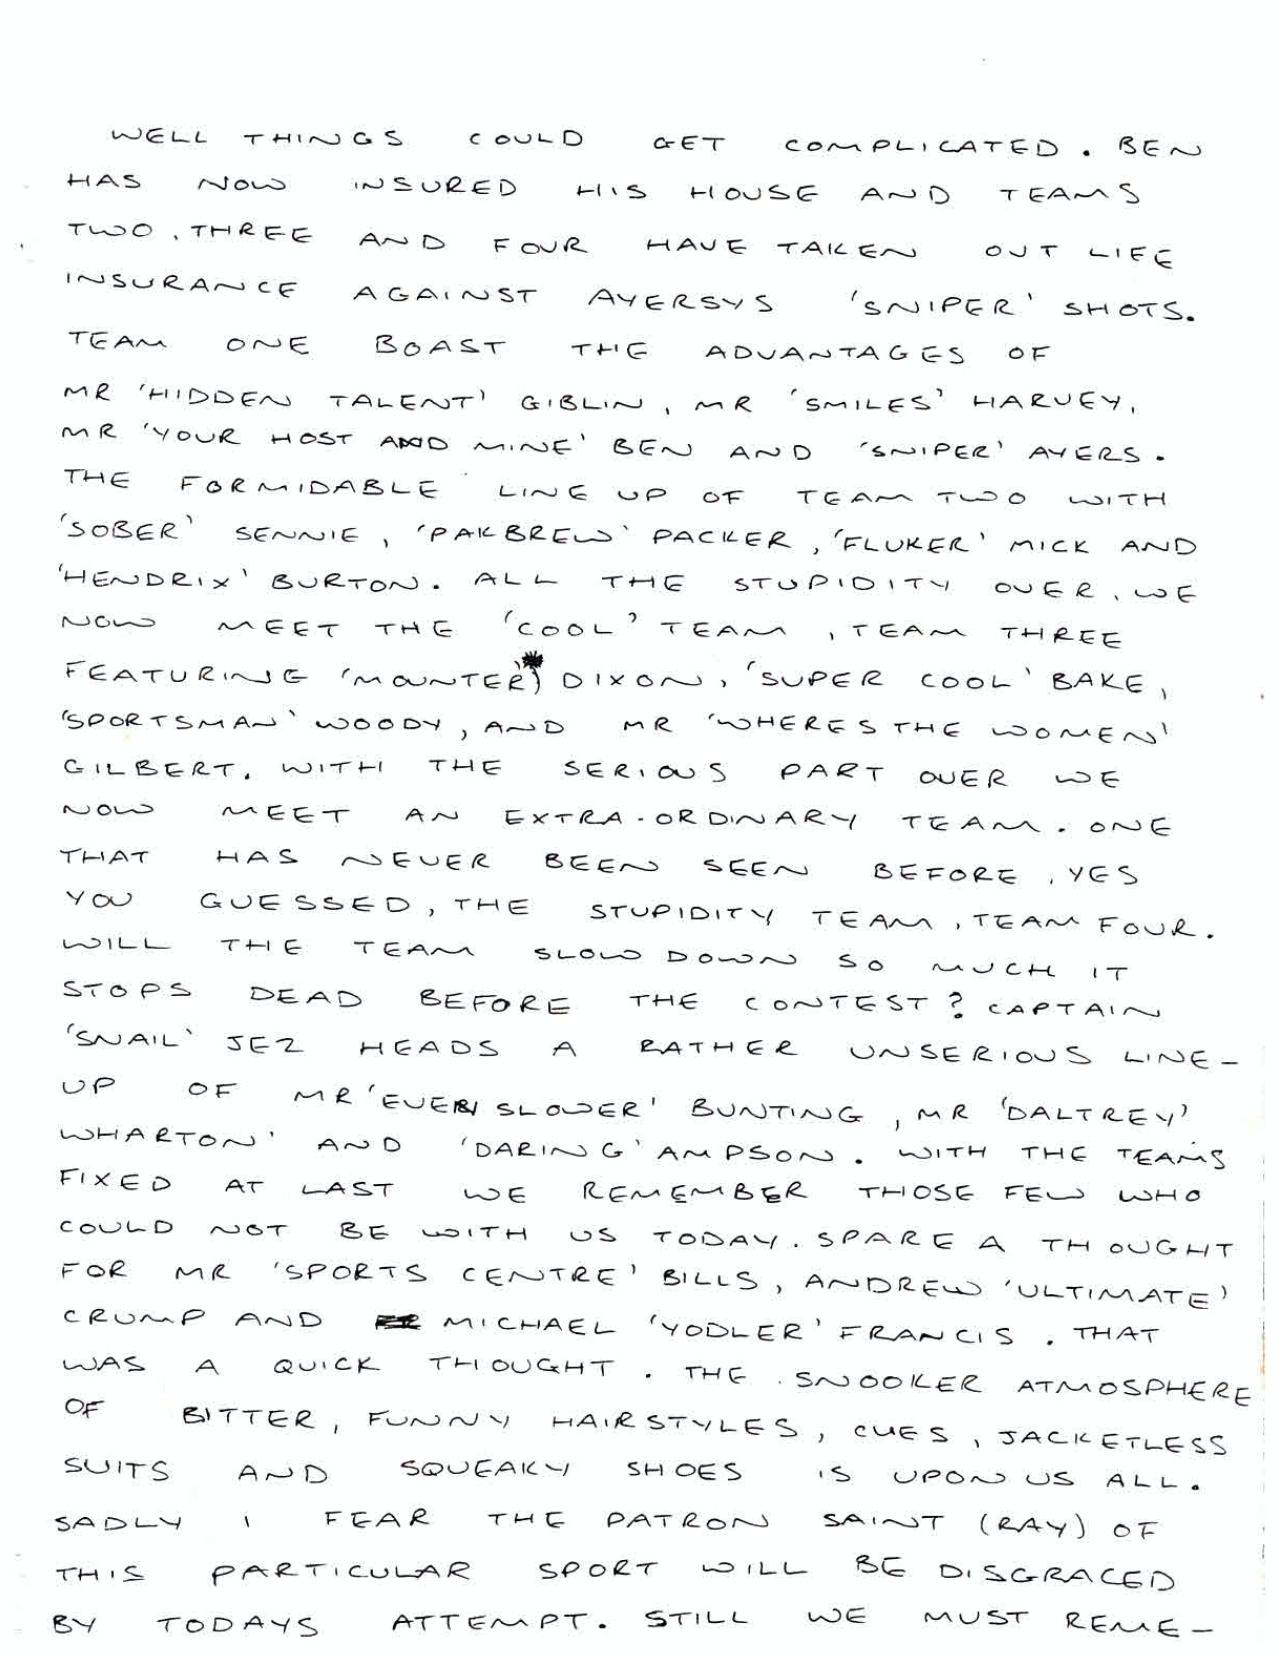 WELL THINGS COULD GET COMPLICATED. BEN
HAS NOW INSURED HIS HOUSE AND TEAMS
TWO, THREE AND FOUR HAVE TAKEN OUT LIFE
INSURANCE AGAINST AYERSYS 'SNIPER' SHOTS.
TEAM ONE BOAST THE ADVANTAGES OF
MR 'HIDDEN TALENT' GIBLIN, MR 'SMILES' HARVEY,
MR 'YOUR HOST AND MINE' BEN AND 'SNIPER' AYERS.
THE FORMIDABLE LINE UP OF TEAM TWO WITH
'SOBER' SENNIE, 'PAKBREW' PACKER, 'FLUKER' MICK AND
'HENDRIX' BURTON. ALL THE STUPIDITY OVER, WE
NOW MEET THE 'COOL' TEAM, TEAM THREE
FEATURING 'MOUNTER' DIXON, 'SUPER COOL' BAKE,
'SPORTSMAN' WOODY, AND MR 'WHERES THE WOMEN'
GILBERT. WITH THE SERIOUS PART OVER WE
NOW MEET AN EXTRA-ORDINARY TEAM. ONE
THAT HAS NEVER BEEN SEEN BEFORE, YES
YOU GUESSED, THE STUPIDITY TEAM, TEAM FOUR.
WILL THE TEAM SLOW DOWN SO MUCH IT
STOPS DEAD BEFORE THE CONTEST? CAPTAIN
'SNAIL' JEZ HEADS A RATHER UNSERIOUS LINE-
UP OF MR 'EVEN SLOWER' BUNTING, MR 'DALTREY'
WHARTON' AND 'DARING' AMPSON. WITH THE TEAMS
FIXED AT LAST WE REMEMBER THOSE FEW WHO
COULD NOT BE WITH US TODAY. SPARE A THOUGHT
FOR MR 'SPORTS CENTRE' BILLS, ANDREW 'ULTIMATE'
CRUMP AND MICHAEL 'YODLER' FRANCIS. THAT
WAS A QUICK THOUGHT. THE SNOOKER ATMOSPHERE
OF BITTER, FUNNY HAIRSTYLES, CUES, JACKETLESS
SUITS AND SQUEAKY SHOES IS UPON US ALL.
SADLY I FEAR THE PATRON SAINT (RAY) OF
THIS PARTICULAR SPORT WILL BE DISGRACED
BY TODAYS ATTEMPT. STILL WE MUST REME-